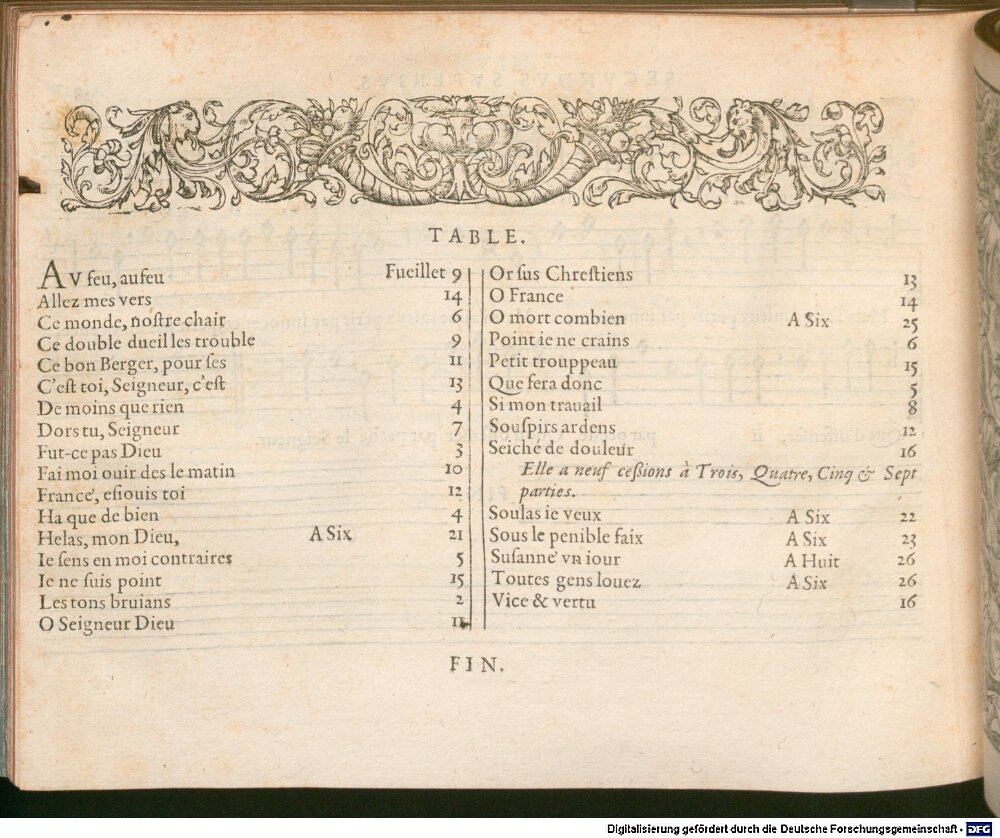 TABLE.
AV feu, aufeu Fueillet 9
Allez mes vers 14
Ce monde, nostre chair 6
Ce double dueil les trouble 9
Ce bon Berger, pour ses 11
C'est toi, Seigneur, c'est 13
De moins que rien 4
Dors tu, Seigneur 7
Fut-ce pas Dieu 3
Fai moi ouir des le matin 10
France, esiouis toi 12
Ha que de bien 4
Helas, mon Dieu, A Six 21
Ie sens en moi contraires 5
Ie ne suis point 15
Les tons bruians 2
O Seigneur Dieu 11
Or sus Chrestiens 13
O France 14
O mort combien A Six 25
Point ie ne crains 6
Petit trouppeau 15
Que sera donc 5
Si mon trauail 8
Souspirs ardens 12
Seiché de douleur 16
Elle a neuf cessions à Trois, Quatre, Cinq & Sept
parties.
Soulas ie veux A Six 22
Sous le penible faix A Six 23
Susanne vn iour A Huit 26
Toutes gens louez A Six 26
Vice & vertu 16
FIN.
Digitalisierung gefördert durch die Deutsche Forschungsgemeinschaft - DFG